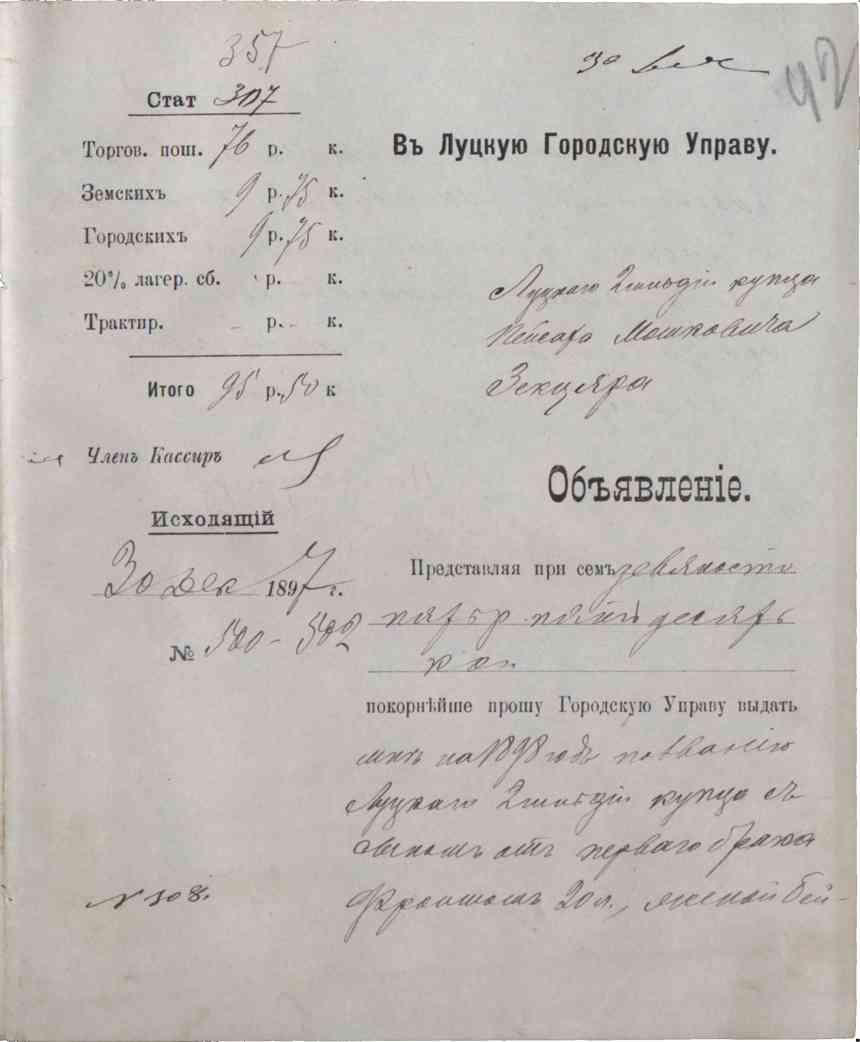 357
30 Дек
42
Стат 307
Торгов. пош. 76 р. к.
Земскихъ 9 р. 75 к.
Городскихъ 9 р. 75 к.
20% лагер. сб. р. к.
Трактир. р. к.
Итого 95 р. 50 к
Членъ Кассиръ
Исходящій
30 Дек 1897 г.
№ 500-502
N 308.
Въ Луцкую Городскую Управу.
Луцкаго 2 гильдіи купца
Пейсаха Мошковича
Зекцера
Объявленіе.
Представляя при семъ девяносто
пять р. пятьдесятъ
коп
покорнѣйше прошу Городскую Управу выдать
мнѣ на 1898 годъ по званію
Луцкаго 2 гильдіи купца съ
сыномъ отъ первого брака
20 л., женой Бей-